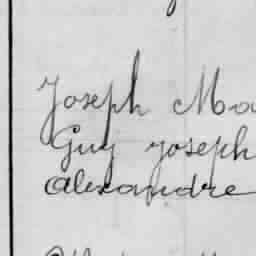 Joseph Ma
Guy Joseph
Alexandre